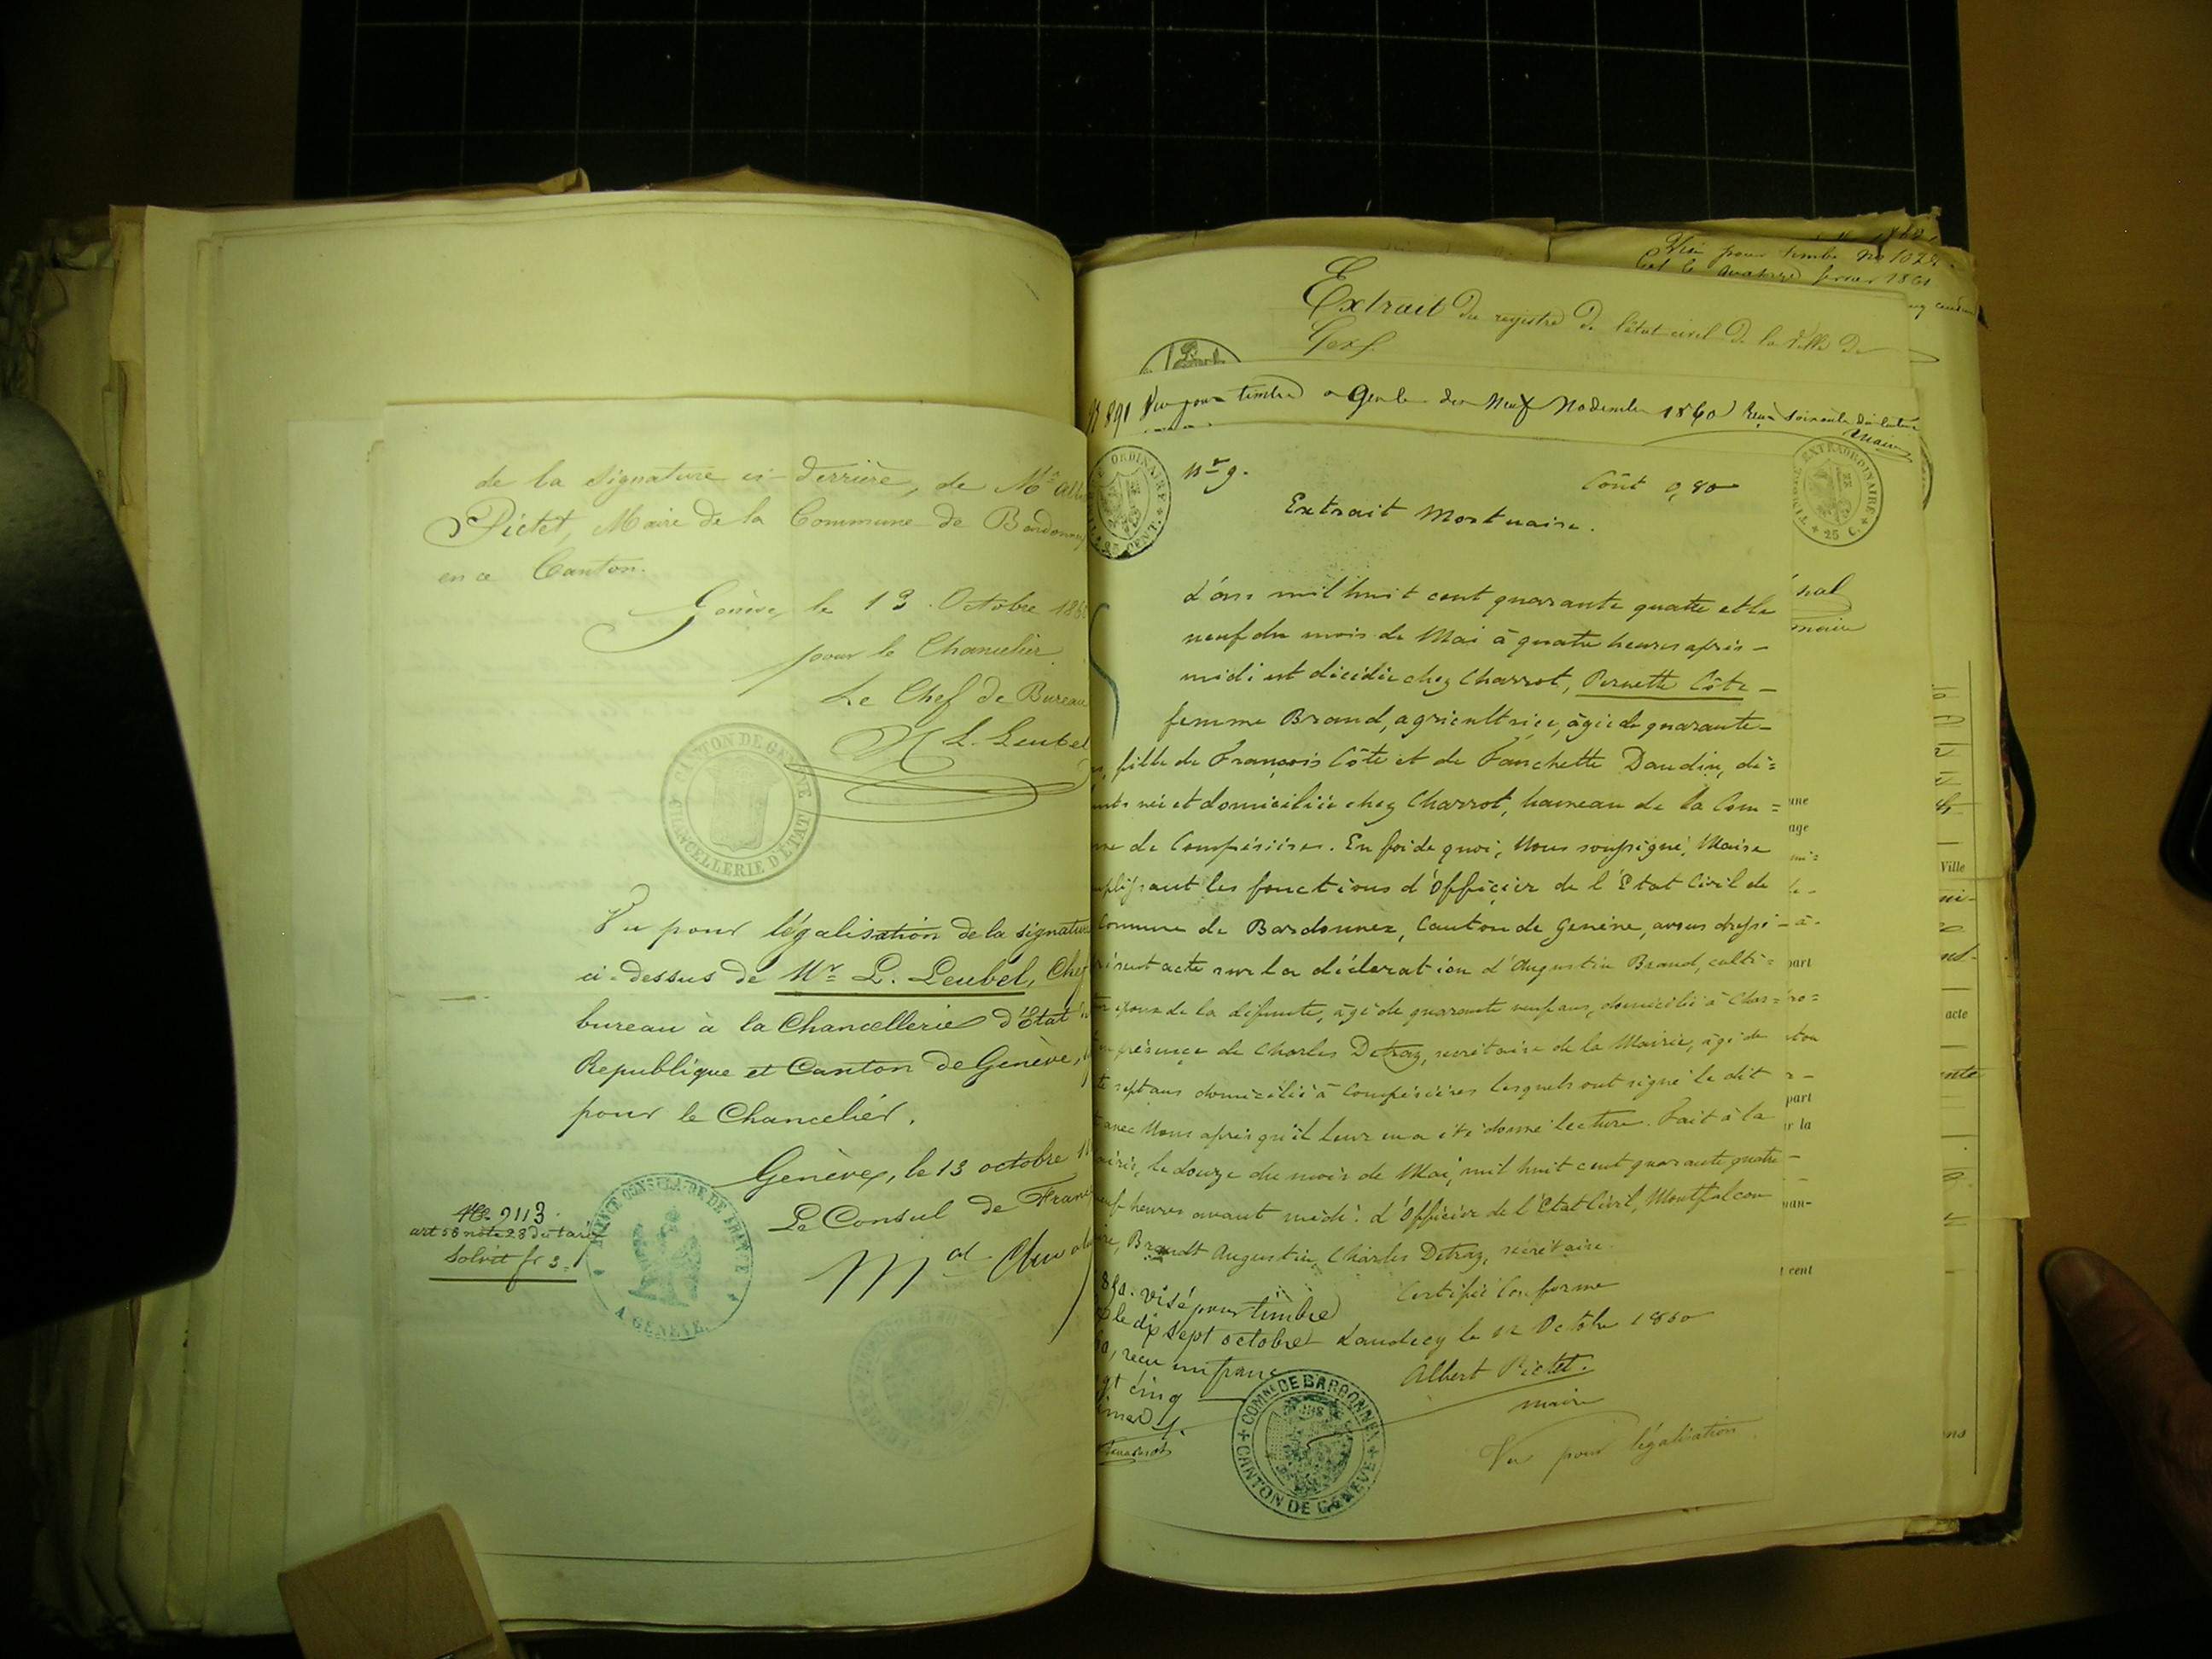 de la signature ci-derrière, de Mr Alb
Pictet, Maire de la Commune de Bardonnex
en ce Canton.
Genève, le 13 Octobre 1860
pour le Chancelier
Le Chef de Bureau
L. Leubel
CANTON DE GENEVE
CHANCELLERIE D'ÉTAT
Vu pour légalisation de la signature
ci-dessus de Mr L. Leubel, Chef
bureau à la Chancellerie d'État
République et Canton de Genève,
pour le Chancelier.
Genève, le 13 octobre
Le Consul de France
No 2113
art 58 note 28 du tarif
Solvit fr 3.
CONSULAIRE DE FRANCE
A GENÈVE
Vu pour timbre no 102
1861
Extrait du registre de l'état civil de la Ville de
Gex
891 Vu pour timbre a le neuf Novembre 1860 Reçu soixante dix centimes
ORDINAIRE
25 CENT.
No 9.
Coût 0,80
TIMBRE EXTRAORDINAIRE
25 C.
Extrait Mortuaire.
L'an mil huit cent quarante quatre et le
neuf du mois de Mai à quatre heures après-
midi est décédée chez Charrot, Pernette Côte
femme Brand, agricultrice, âgée de quarante-
fille de François Côte et de Fanchette Daudin, dé=
nts née et domiciliée chez Charrot, hameau de la Com=
ne de Compésières. En foi de quoi, Nous soussigné, Maire
plissant les fonctions d'Officier de l'Etat Civil de
Commune de Bardonnex, Canton de Genève, avons dressé
présent acte sur la déclaration d'Augustin Brand, culti=
époux de la défunte, âgé de quarante neuf ans, domicilié à Char=
en présence de Charles Detraz, secrétaire de la Mairie, âgé de
te sept ans domicilié à Compésières lesquels ont signé le dit
avec Nous après qu'il leur en a été donné lecture. Fait à la
airie, le douze du mois de Mai, mil huit cent quarante quatre
neuf heures avant midi. L'Officier de l'Etat Civil, Montfalcon
ire, Brandt Augustin, Charles Detraz, secrétaire.
Certifié Conforme
visé pour timbre
le dix sept octobre
Landecy le 12 Octobre 1860
reçu un franc
gt cinq
Albert Pictet.
maire
COMNE DE BARDONNEX
CANTON DE GENÈVE
Vu pour légalisation
sal
maire
une
age
part
acte
Ville
part
r la
cent